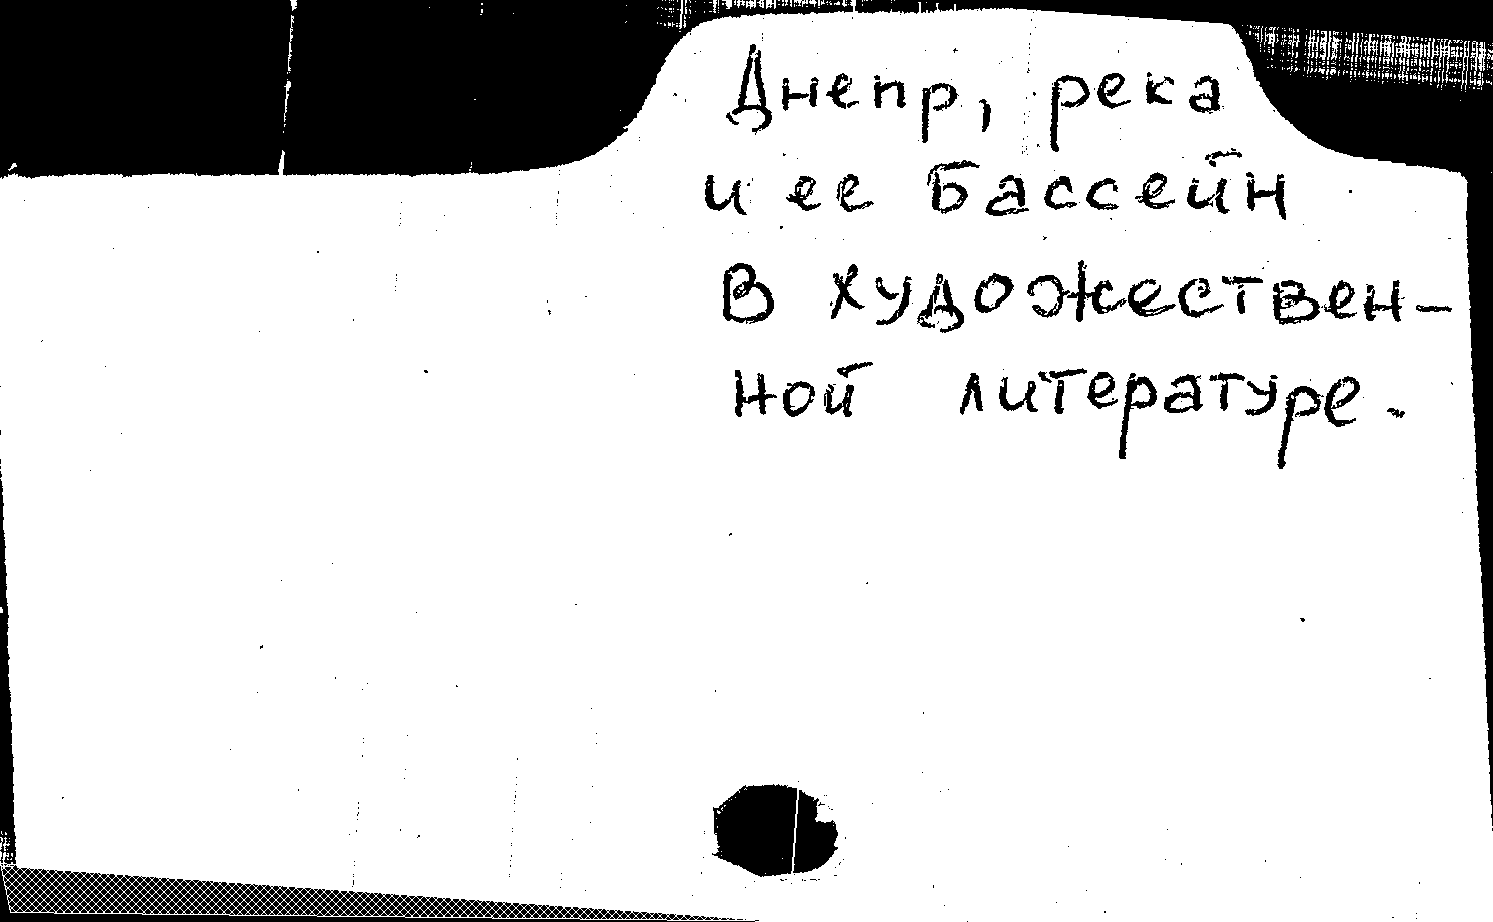 Днепр, река
и ее бассейн
в художествен-
ной литературе.